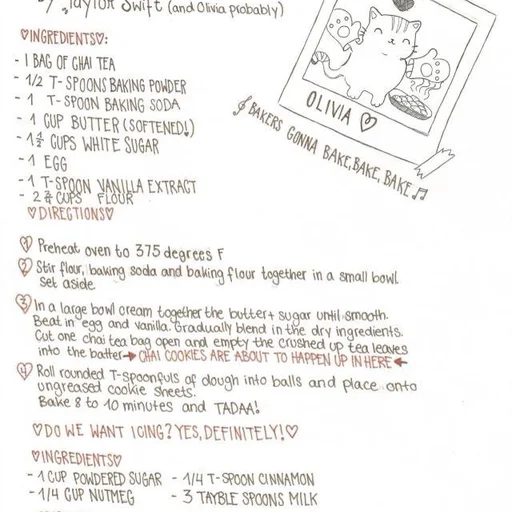 by Taylor Swift (and Olivia probably)
♡INGREDIENTS♡:
- 1 BAG OF CHAI TEA
- 1/2 T-SPOONS BAKING POWDER
- 1 T-SPOON BAKING SODA
- 1 CUP BUTTER (SOFTENED!)
- 1 1/2 CUPS WHITE SUGAR
- 1 EGG
- 1 T-SPOON VANILLA EXTRACT
- 2 3/4 CUPS FLOUR
OLIVIA ♡
BAKERS GONNA BAKE, BAKE, BAKE ♫
♡DIRECTIONS♡
1 Preheat oven to 375 degrees F
2 Stir flour, baking soda and baking flour together in a small bowl.
Set aside.
3 In a large bowl cream together the butter + sugar until smooth.
Beat in egg and vanilla. Gradually blend in the dry ingredients.
Cut one chai tea bag open and empty the crushed up tea leaves
into the batter → CHAI COOKIES ARE ABOUT TO HAPPEN UP IN HERE ←
4 Roll rounded T-Spoonfuls of dough into balls and place onto
ungreased cookie sheets.
Bake 8 to 10 minutes and TADAA!
♡DO WE WANT ICING? YES, DEFINITELY!♡
♡INGREDIENTS♡
- 1 CUP POWDERED SUGAR - 1/4 T-SPOON CINNAMON
- 1/4 CUP NUTMEG - 3 TAYBLE SPOONS MILK